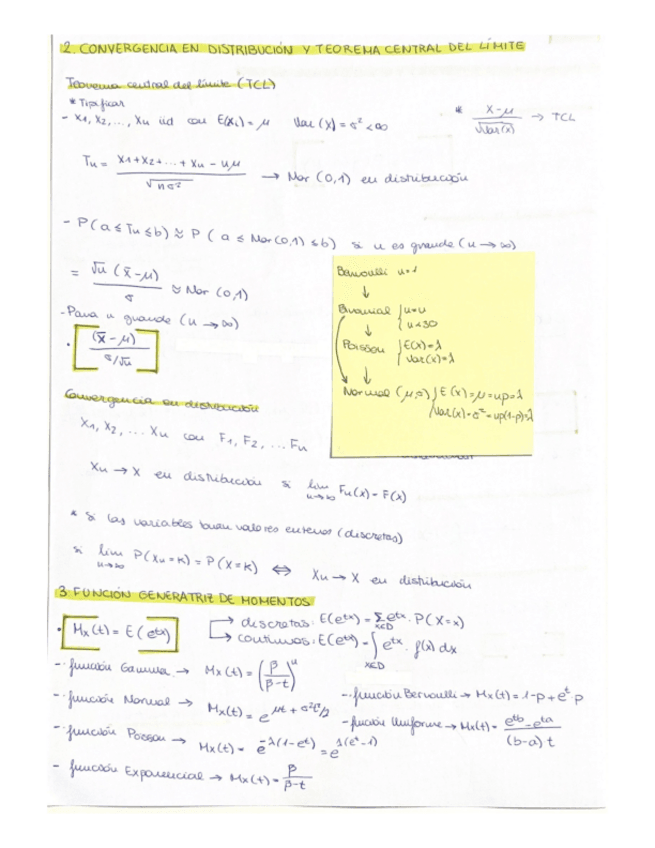 2. CONVERGENCIA EN DISTRIBUCIÓN Y TEOREMA CENTRAL DEL LÍMITE
Teorema central del límite (TCL)
* Tipificar
- X1, X2, ..., Xn iid con E(Xi) = μ Var (X) = σ² < ∞
* X-μ / √Var(X) → TCL
Tn = X1+X2+...+Xn - nμ / √nσ² → Nor (0,1) en distribución
- P(a ≤ Tn ≤ b) ≈ P ( a ≤ Nor(0,1) ≤ b) si n es grande (n → ∞)
= √n (x̄-μ) / σ ≈ Nor (0,1)
- Para n grande (n → ∞)
· (x̄ - μ) / σ/√n
Bernoulli n=1
↓
Binomial { n=n
n<30
↓
Poisson { E(X)=λ
Var(x)=λ
↓
Normal (μ,σ) { E(x)=μ=np=λ
Var(x)=σ²=np(1-p)=λ
Convergencia en distribución
X1, X2, ... Xn con F1, F2, ... Fn
Xn → X en distribución si lim n→∞ Fn(x) = F(x)
* Si las variables toman valores enteros (discretas)
si lim n→∞ P(Xn=K) = P(X=K) ⇔ Xn → X en distribución
3 FUNCIÓN GENERATRIZ DE MOMENTOS
· Mx(t) = E(e^tx)
→ discretas: E(e^tx) = Σ x∈D e^tx · P(X=x)
→ continuas: E(e^tx) = ∫ x∈D e^tx · f(x) dx
- función Gamma → Mx(t) = (β / β-t)^u
- función Normal → Mx(t) = e^μt + σ²t²/2
- función Bernoulli → Mx(t) = 1-p + e^t · p
- función Uniforme → Mx(t) = e^tb - e^ta / (b-a) t
- función Poisson → Mx(t) = e^-λ(1-e^t) = e^λ(e^t-1)
- función Exponencial → Mx(t) = β / β-t